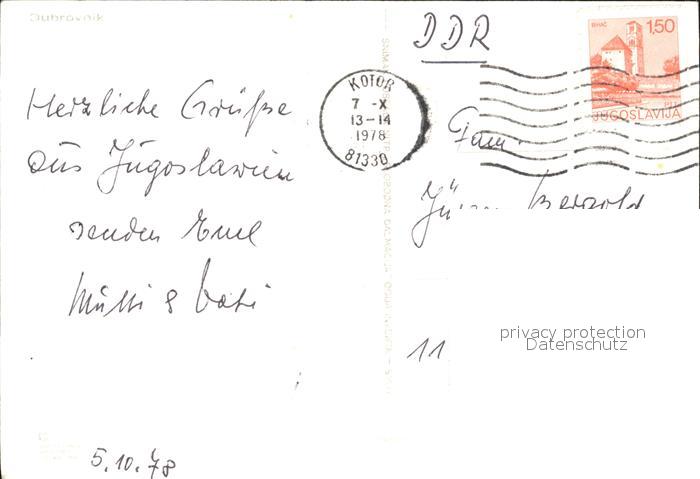 Dubrovnik
Herzliche Grüße
aus Jugoslawien
senden Eure
Mutti & Vati
5.10.78
DDR
KOTOR
7 -X
13-14
1978
81330
BIHAĆ
1,50
PTT
JUGOSLAVIJA
Fam.
11
privacy protection
Datenschutz